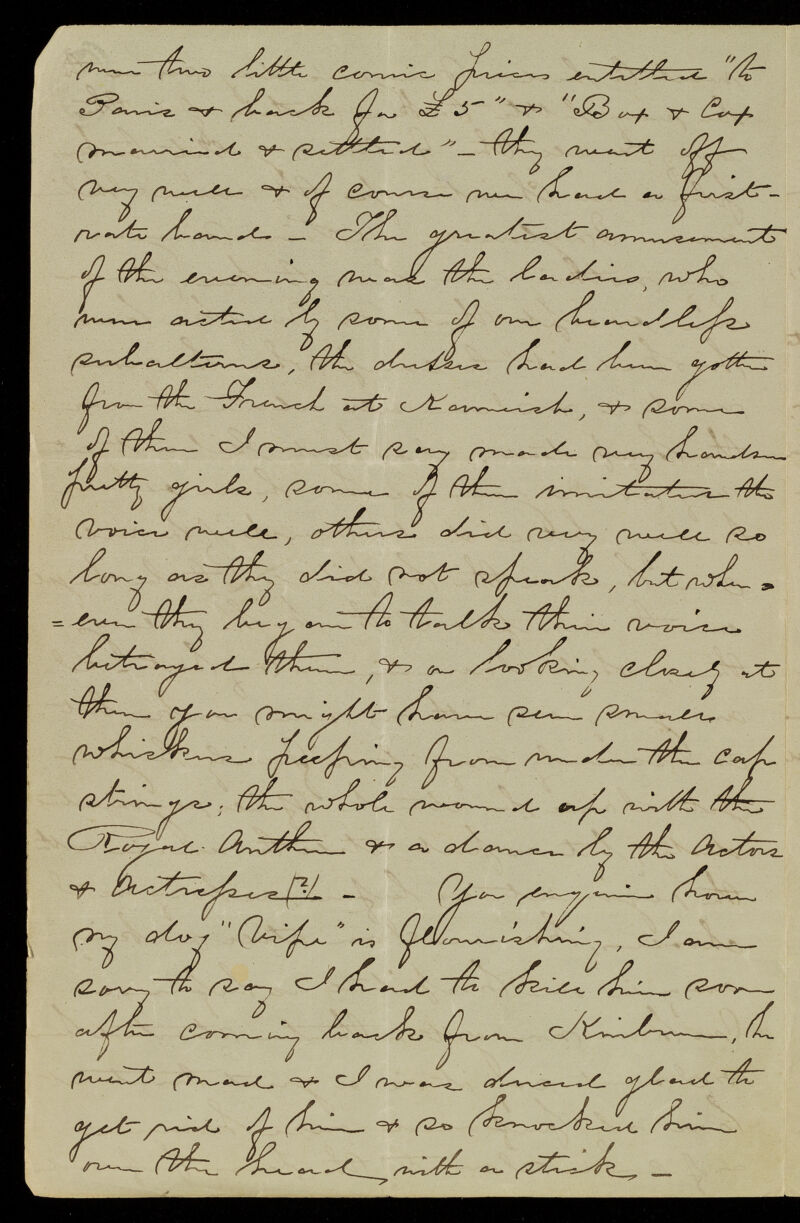 were two little comic pieces entitled "to
Paris & back for £5" & "Box & Cox
married & settled" – they went off
very well & of course we had a first-
rate band – The greatest amusement
of the evening was the ladies, who
were acted by some of our beardless
subalterns, the dresses had been gotten
from the French at Kamiesh, & some
of them I must say made very handsome
pretty girls, some of them imitated the
voice well, others did very well so
long as they did not speak, but when =
= ever they began to talk their voice
betrayed them, & on looking closely at
them you might have seen small
whiskers peeping from under the cap
strings; the whole wound up with the
Royal Anthem & a dance by the Actors
& Actresses [?] – You enquire how
my dog "Vife" is flourishing, I am
sorry to say I had to kill him soon
after coming back from Kinburn, he
went mad & I was deuced glad to
get rid of him & so knocked him
over the head with a stick –